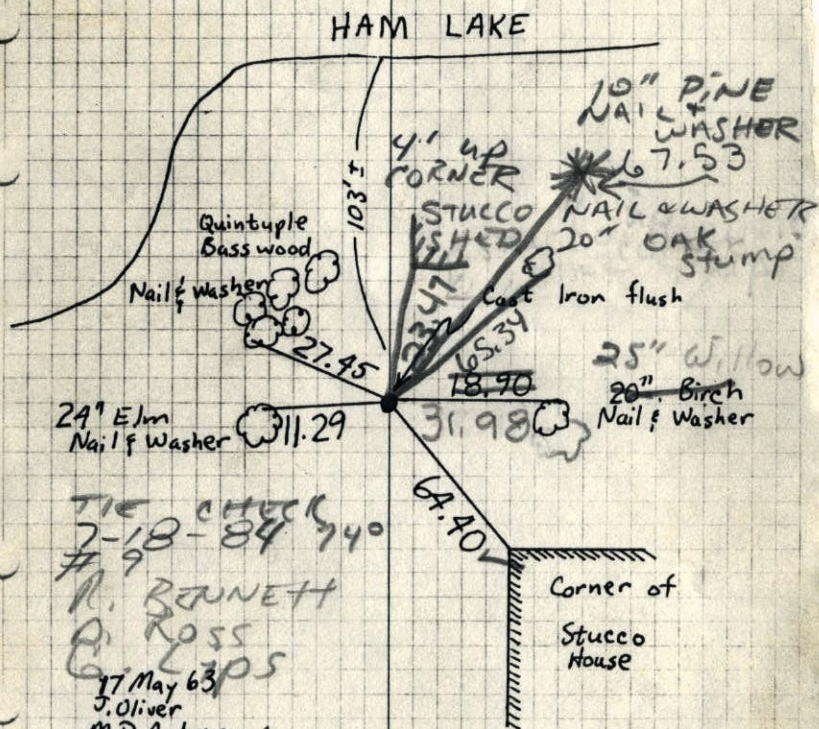 HAM LAKE
10" PINE
NAIL &
WASHER
67.53
4' up
CORNER
STUCCO
SHED
103'±
NAIL & WASHER
20" OAK
Stump
Quintuple
Basswood
Nail & Washer
Cast Iron flush
23.47
65.34
27.45
18.90
25" Willow
20" Birch
Nail & Washer
24" Elm
Nail & Washer
11.29
31.98
64.40
TIE CHECK
7-18-84 74°
# 9
R. BENNETT
D. ROSS
G. Lips
17 May 63
J. Oliver
Corner of
Stucco
House